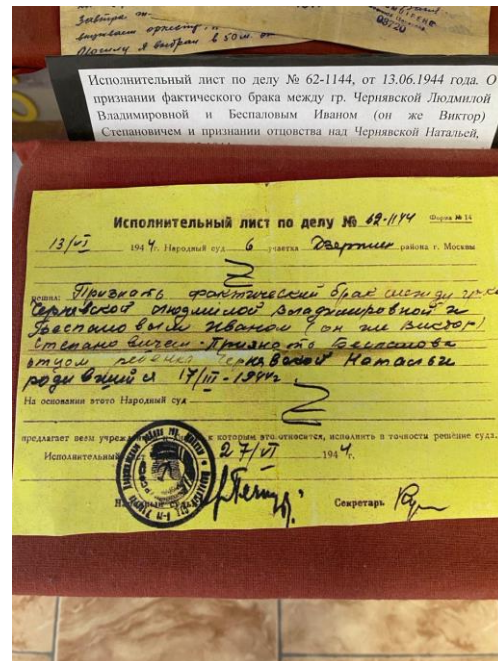 Завтра
вызываем оркестр,
Могилу я выбрал в 50 м. от
08.20
Исполнительный лист по делу № 62-1144, от 13.06.1944 года. О
признании фактического брака между гр. Чернявской Людмилой
Владимировной и Беспаловым Иваном (он же Виктор)
Степановичем и признании отцовства над Чернявской Натальей,
Исполнительный лист по делу № 62-1144 Форма № 14
13/VI 1944. Народный суд 6 участка Дзержин района г. Москвы
решил: Признать фактический брак между гр-кой
Чернявской Людмилой Владимировной и
Беспаловым Иваном (он же Виктор)
Степановичем. Признать Беспалова
отцом ребенка Чернявской Натальи
родившийся 17/III-1944г
На основании этого Народный суд
предлагает всем учрежд к которым это относится, исполнить в точности решение суда.
Исполнительный 27/VI 1944г.
Народный судья Секретарь